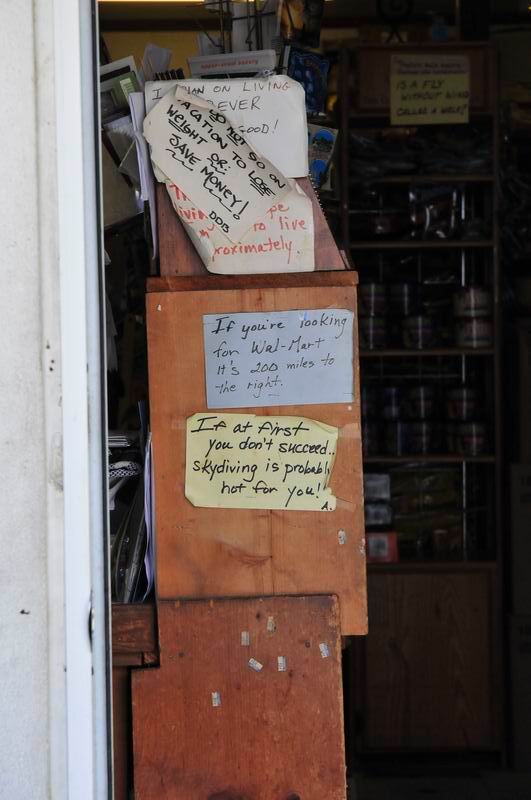 I PLAN ON LIVING
EVER
GOOD!
DO NOT GO ON
VACATION TO LOSE
WEIGHT OR:
SAVE MONEY!
DDB
to live
roximately.
IS A FLY
WITHOUT WINGS
CALLED A WALK?
If you're looking
for Wal-Mart
It's 200 miles to
the right.
If at first
you don't succeed..
skydiving is probably
not for you!
A.